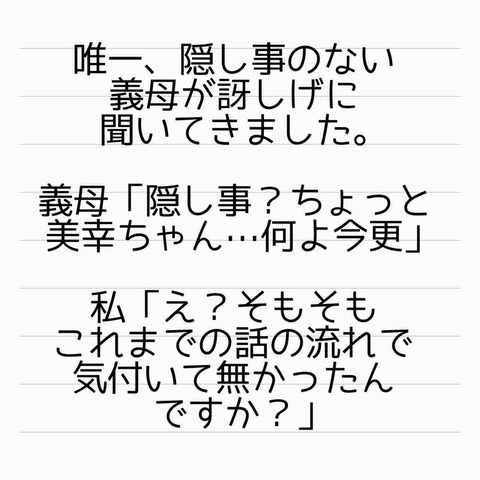 唯一、隠し事のない
義母が訝しげに
聞いてきました。
義母「隠し事？ちょっと
美幸ちゃん…何よ今更」
私「え？そもそも
これまでの話の流れで
気付いて無かったん
ですか？」